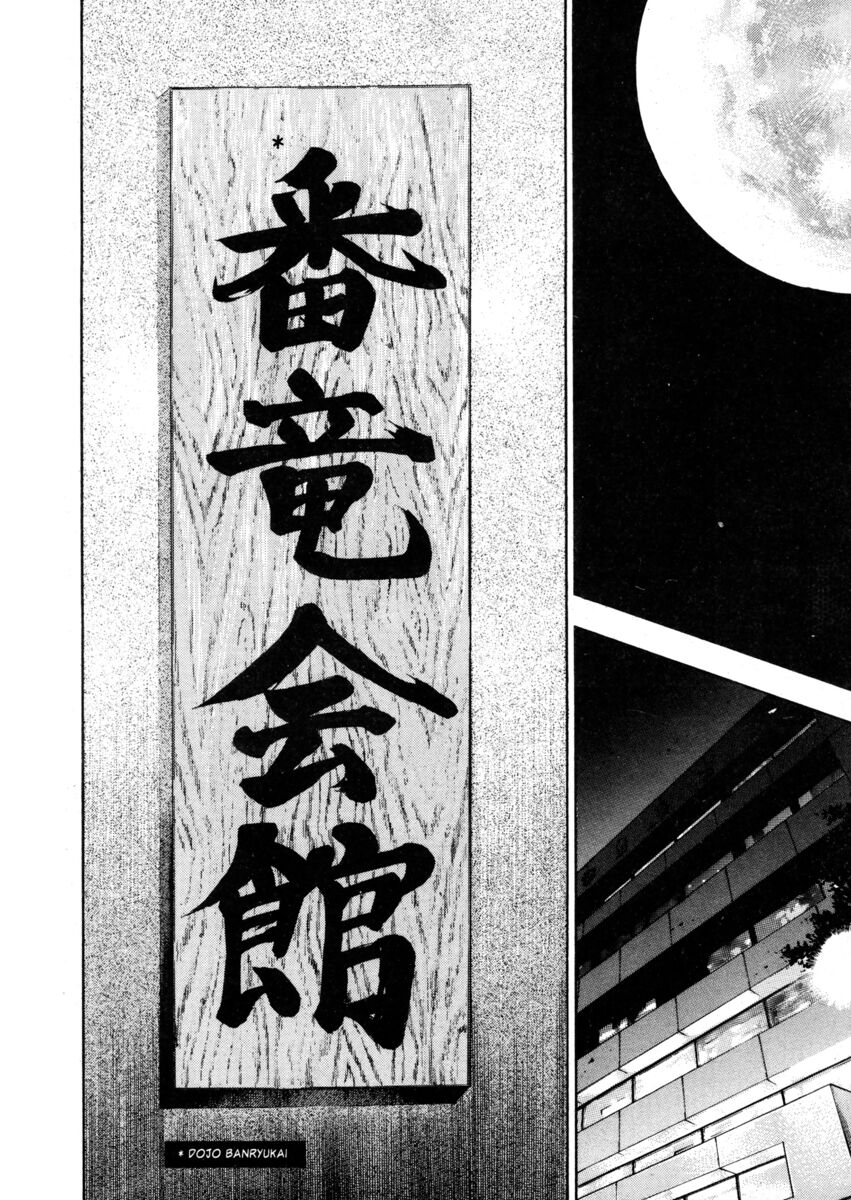 *
番竜会館
* DOJO BANRYUKAI